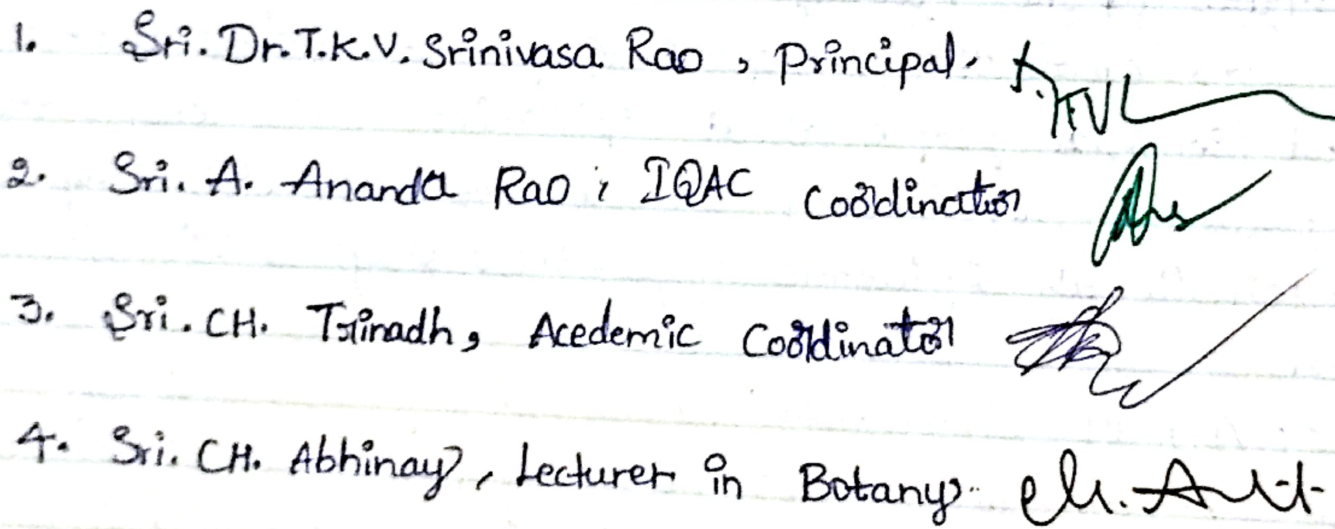 1. Sri. Dr. T.K.V. Srinivasa Rao, Principal.
2. Sri. A. Ananda Rao, IQAC Coordination
3. Sri. CH. Trinadh, Acedemic Coordinator
4. Sri. CH. Abhinay, Lecturer in Botany.